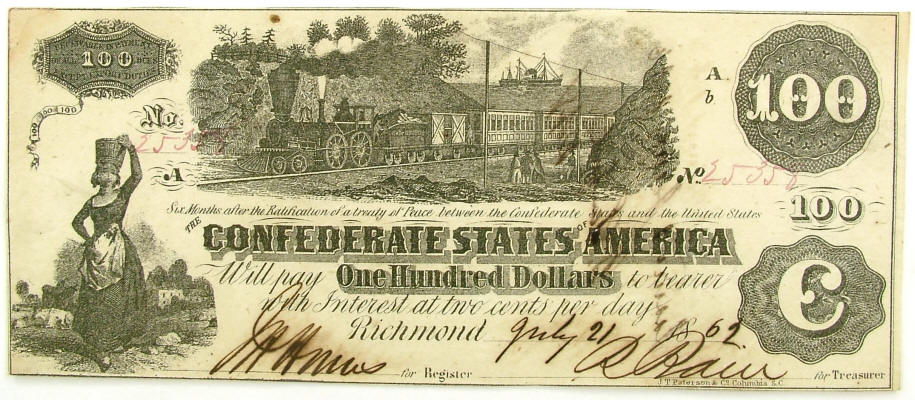 RECEIVABLE IN PAYMENT
OF ALL DUES
100
EXCEPT EXPORT DUTIES
100 100 100
No.
A
A
b
100
No
100
Six Months after the Ratification of a treaty of Peace between the Confederate States and the United States
THE CONFEDERATE STATES OF AMERICA
Will pay One Hundred Dollars to bearer
with Interest at two cents per day
Richmond July 21 1862.
C
for Register
for Treasurer
J.T. Paterson & Co. Columbia S.C.